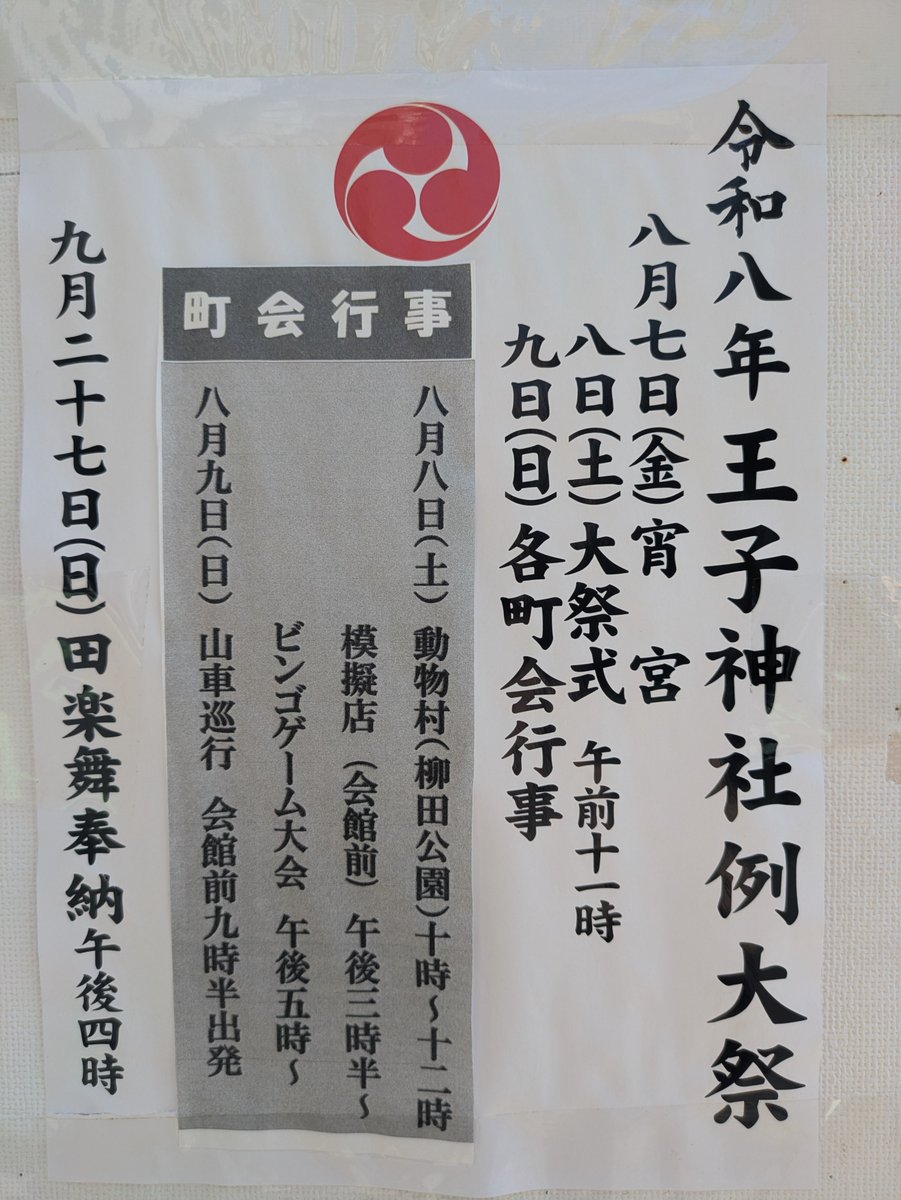 令和八年 王子神社例大祭
八月七日(金)宵 宮
八日(土)大祭式 午前十一時
九日(日)各町会行事
町会行事
八月八日(土) 動物村(柳田公園)十時~十二時
模擬店 (会館前) 午後三時半~
ビンゴゲーム大会 午後五時~
八月九日(日) 山車巡行 会館前九時半出発
九月二十七日(日)田楽舞奉納午後四時